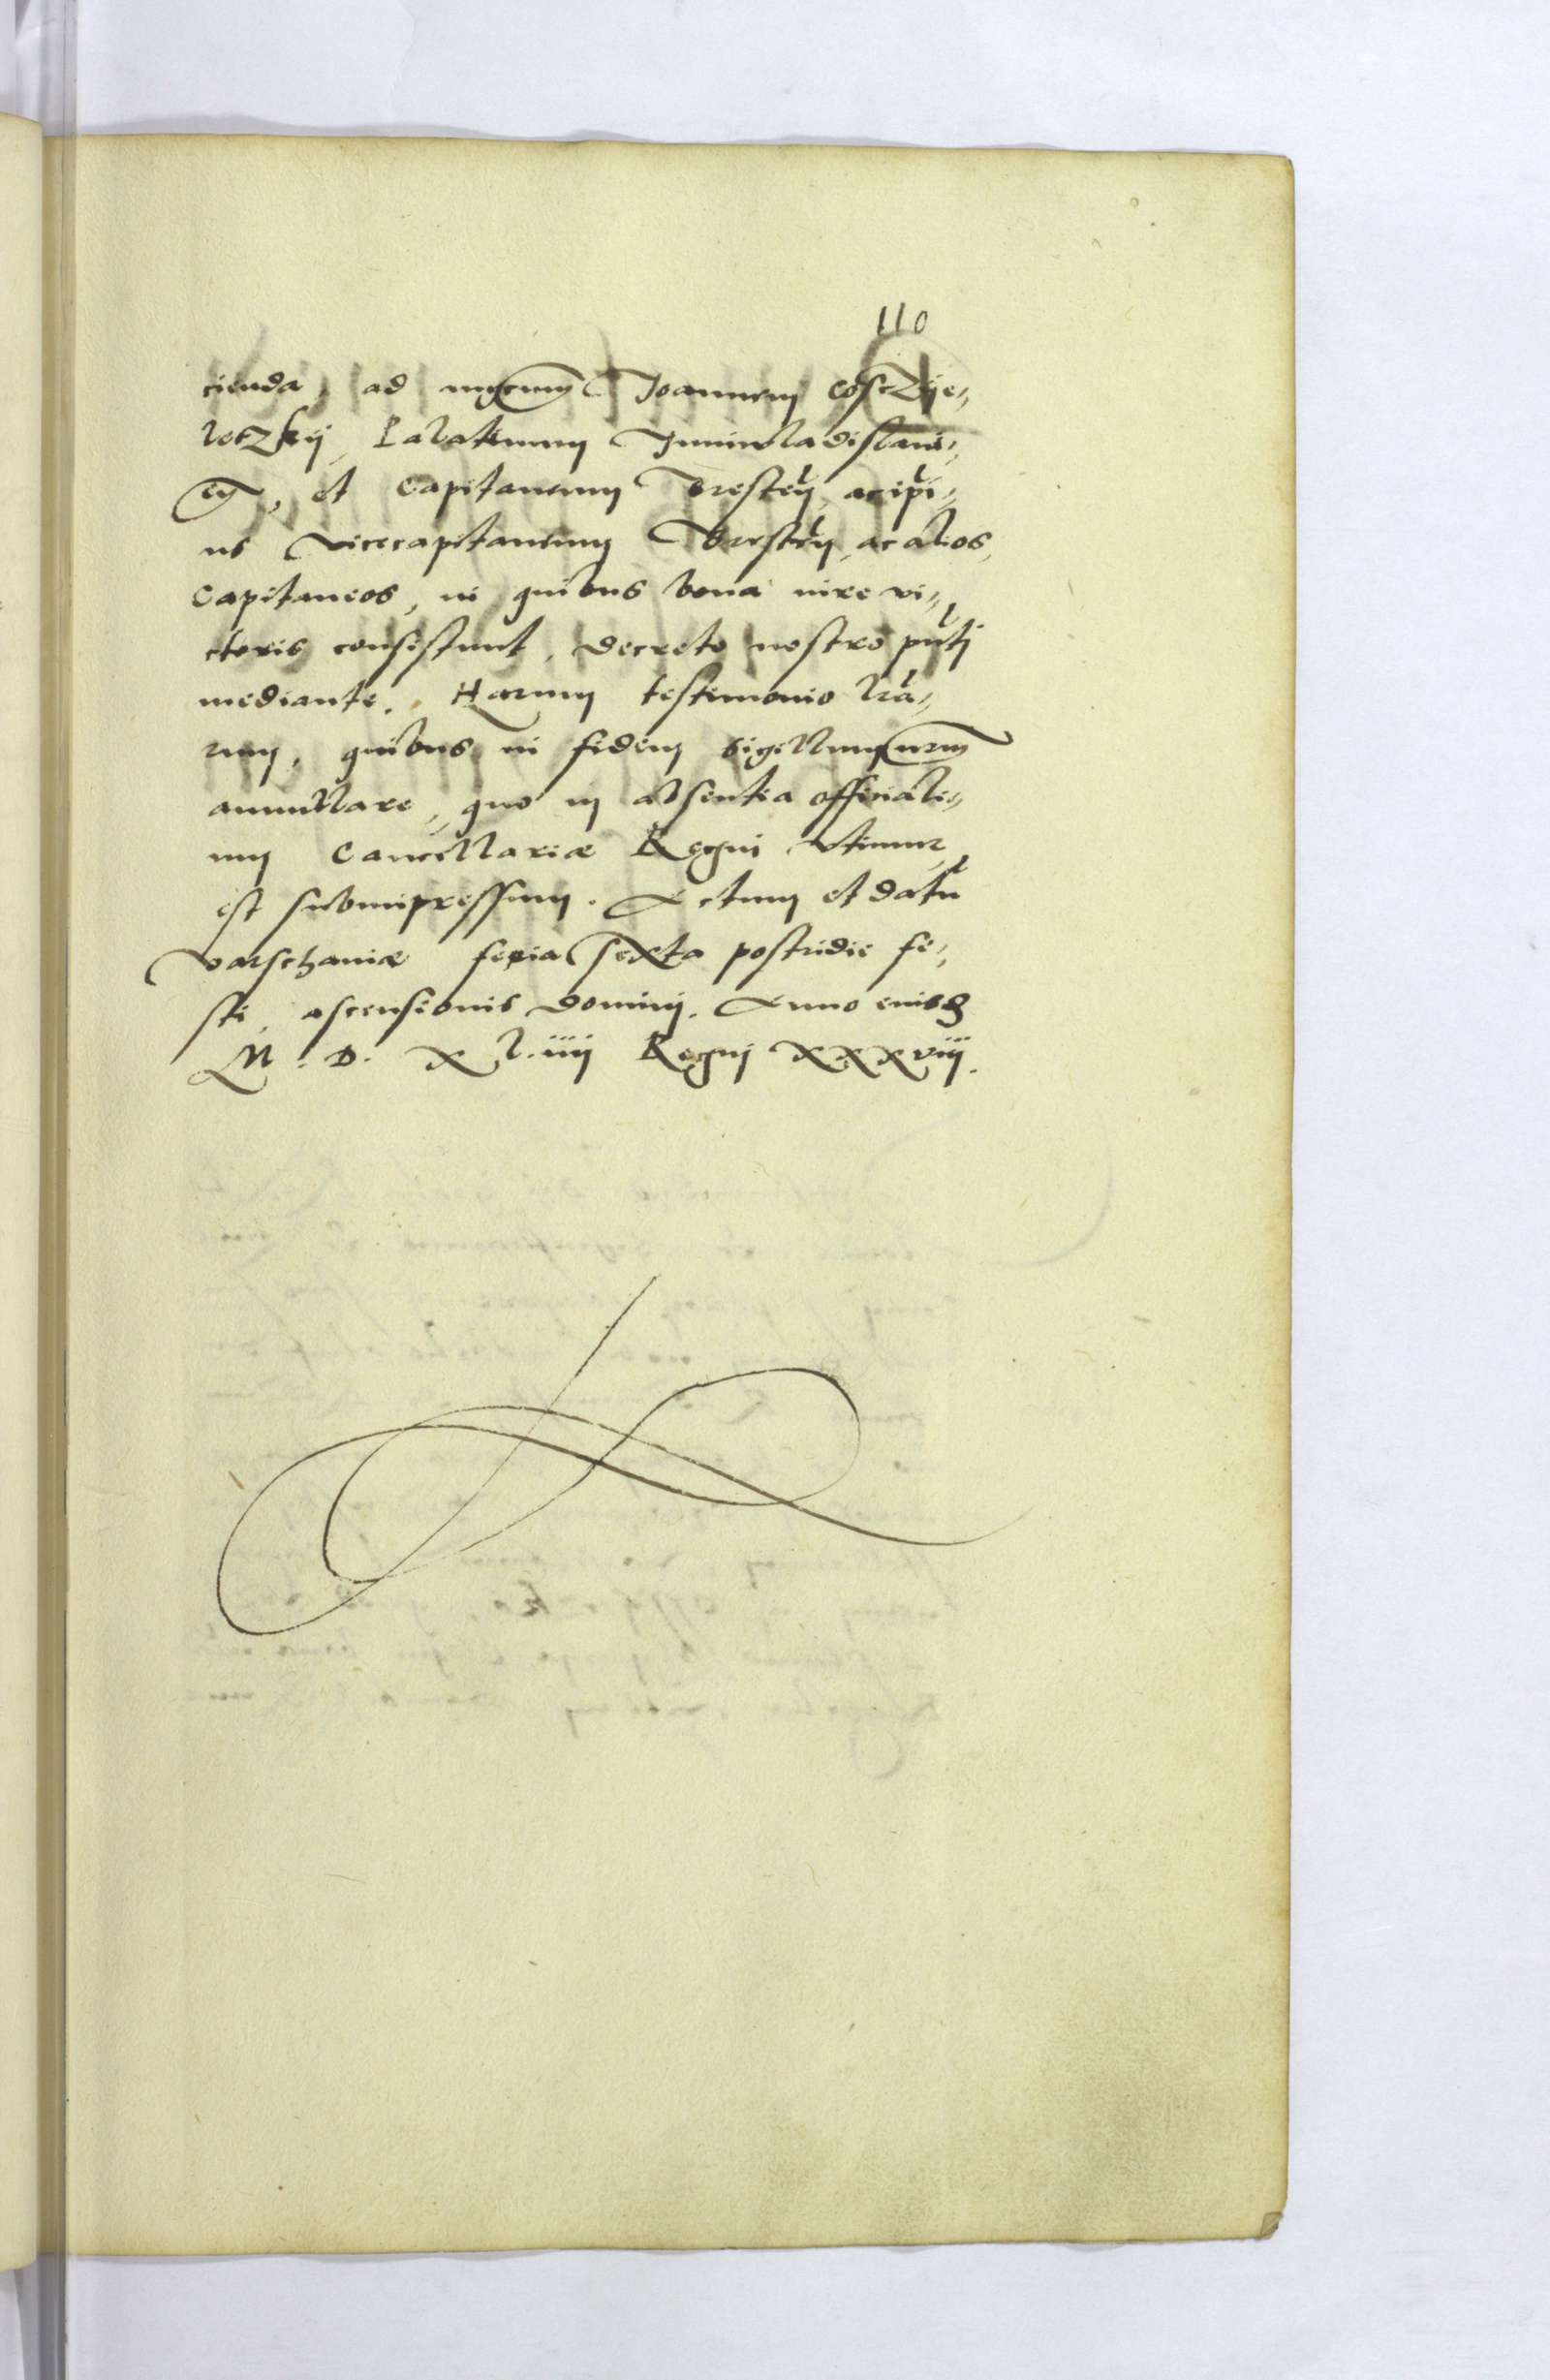 110
cienda, ad mgcum Joannem Cosczye„
letzkij, Palatinum Juniwladislavi„
eñ, et Capitaneum Bresteñ, ac ipi„
us vicecapitaneum Bresteñ, ac alios,
Capitaneos, in quibus bona iure vi„
ctoris consistunt, decreto nostro pñtj
mediante. Harum testimonio lrã„
rum, quibus in fidem sigillum nrm
annullare, quo in absentia officiali„
um Cancellariæ Regni vtimur,
est subimpressum. Actum et datũ
Varschaviæ feria sexta postridie fe„
sti, ascensionis dominj. Anno eiusdẽ
M. D. X L. iiij Regnj XXXviij.